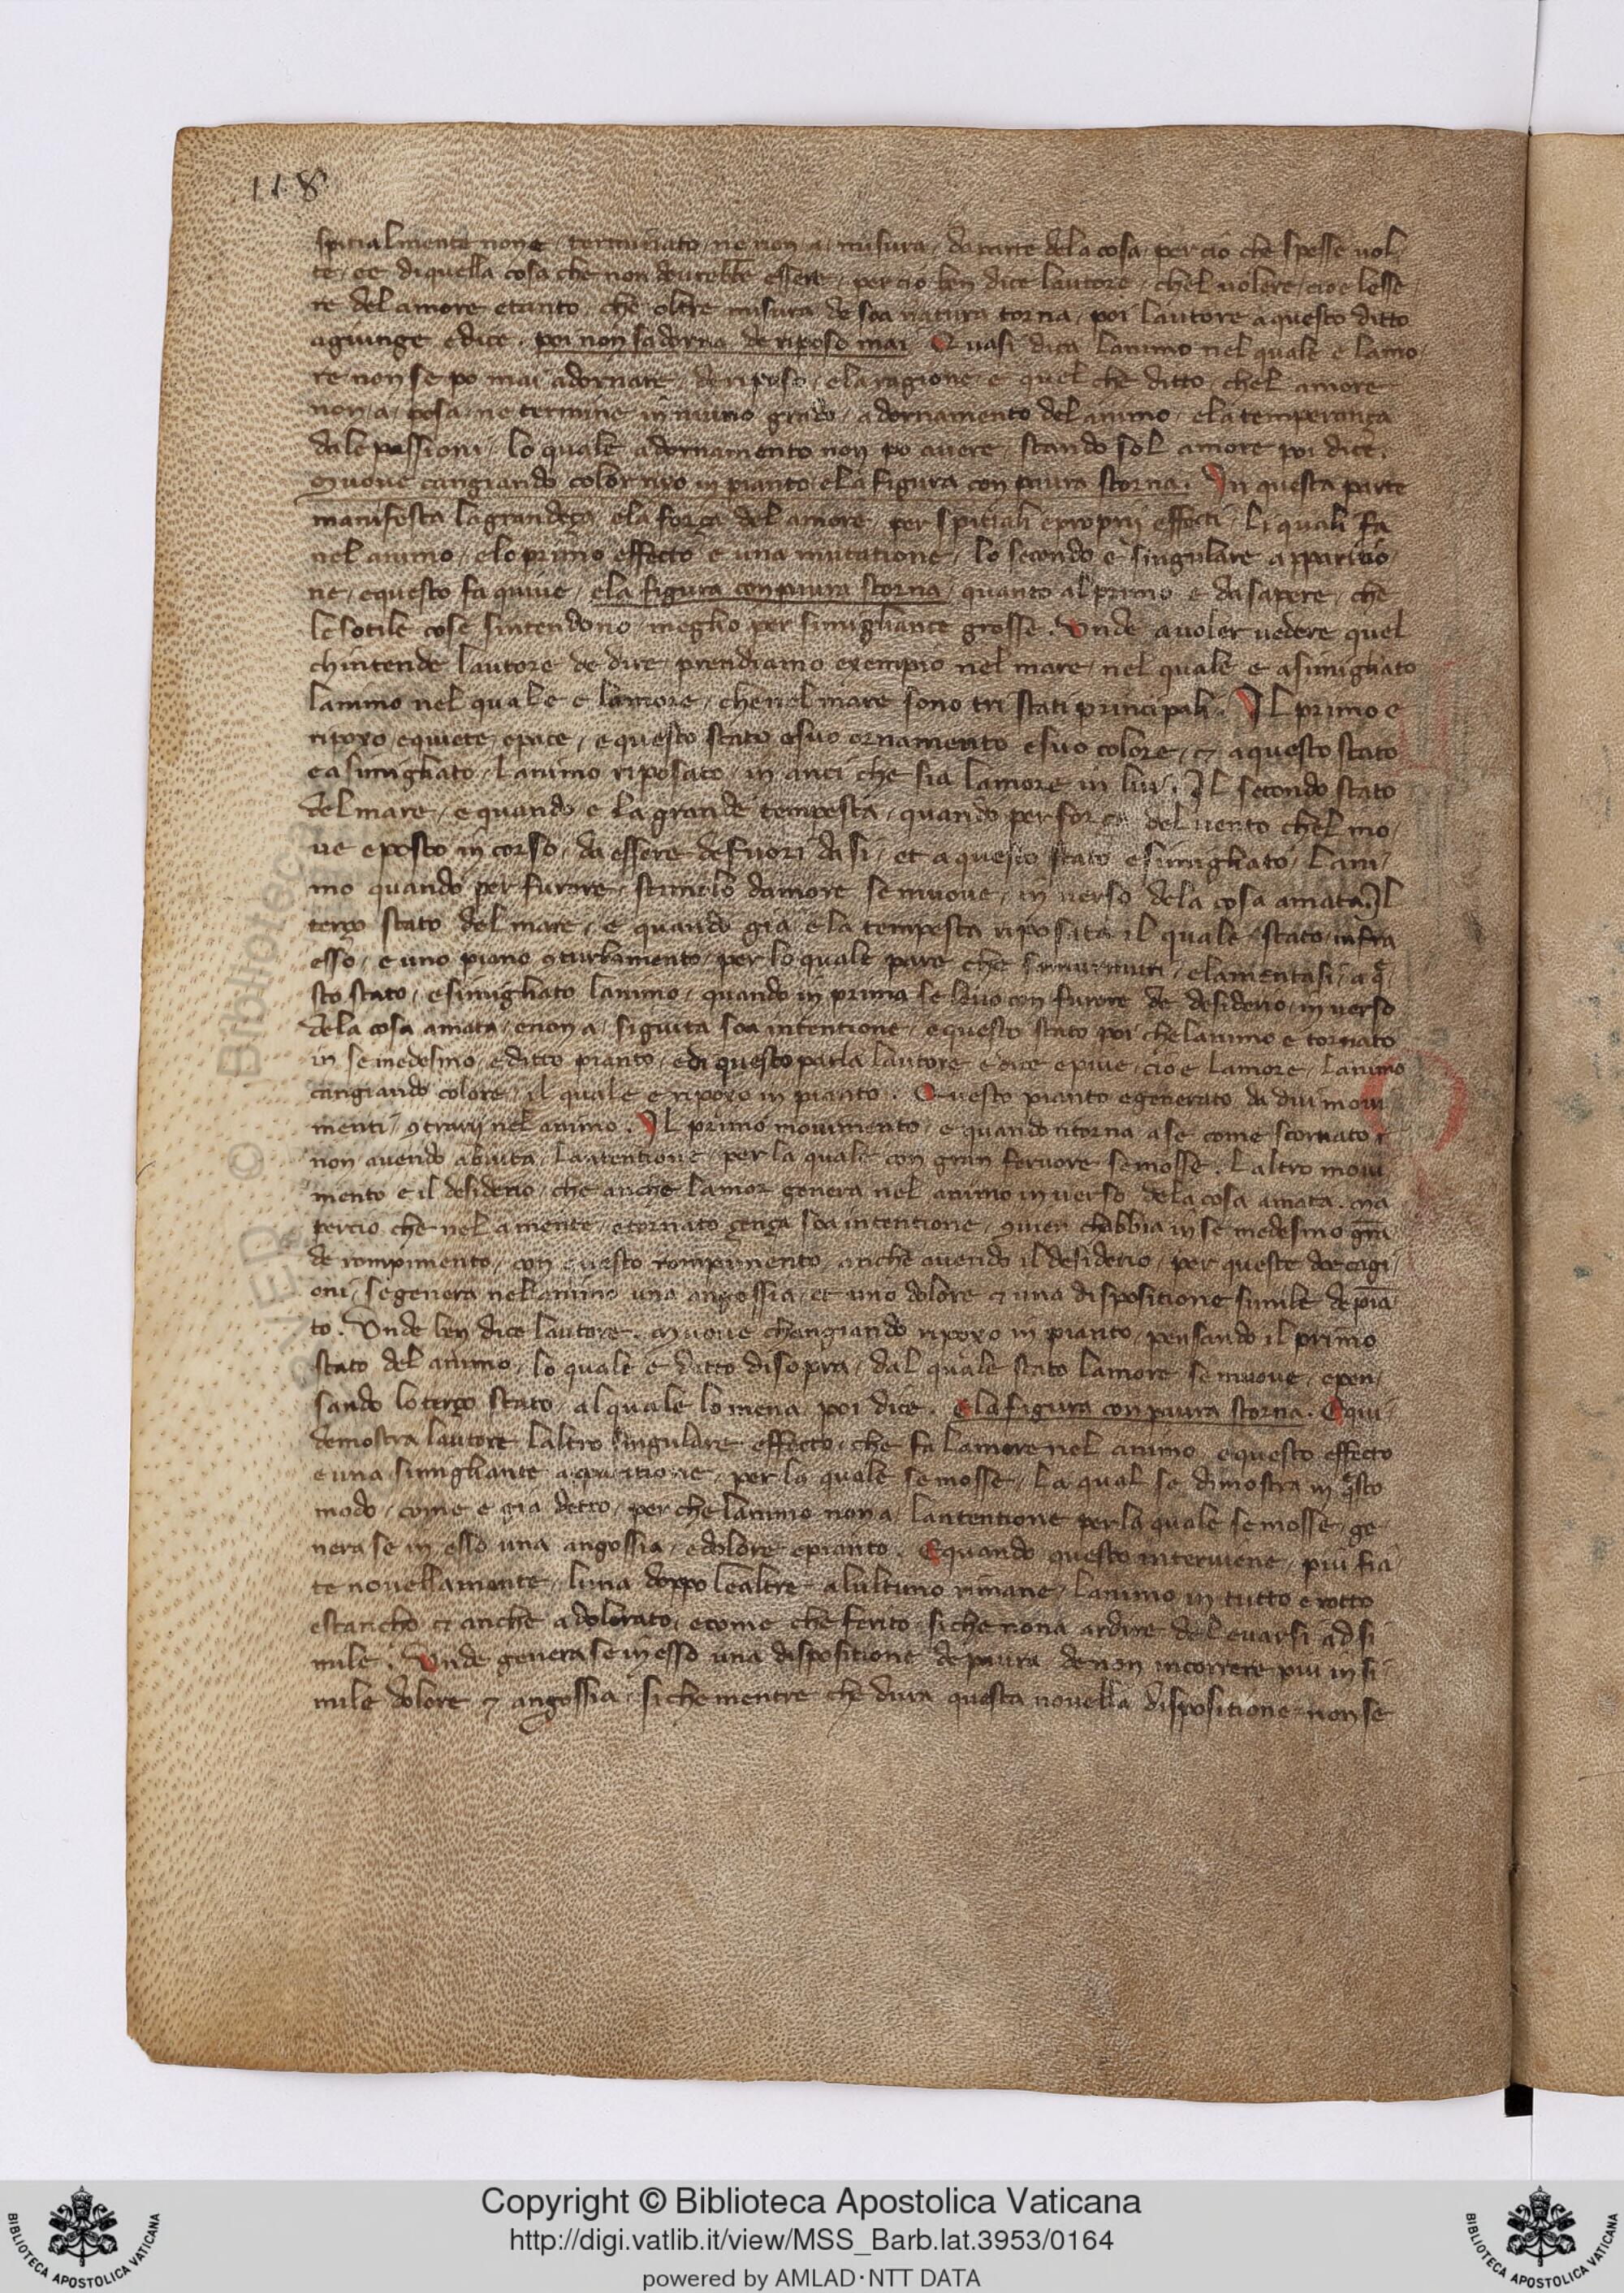 118
spitialmente none / terminato / ne non a misura / da parte dela cosa / percio che spesse uol
te / ee di quella cosa che non deurebbe essere / per cio ben dice lautore / chel uolere / cioe lesse
re del amore etanto / che oltre misura de soa natura torna / poi lautore a questo ditto
agiunge e dice . poi non sadorna de riposo mai Quasi dica lanimo nel quale e lamo
re non se po mai adornare / de riposo / e la ragione / e quel che ditto / chel amore
non / a / posa / ne termine in niuno grado / adornamento del animo / e la temperança
dale passioni / lo quale adornamento non po auere / stando sol amore poi dice .
Muoue cangiando color riso in pianto e la figura con paura storna . In questa parte
manifesta la grandeça e la força del amore / per spitiali e proprij effecti / li quali fa
nel animo / e lo primo effecto e una mutatione / lo secondo e singulare apparitio
ne / e questo fa quiue / e la figura con paura storna / quanto al primo e da sapere / che
le sotile cose sintendono / meglio per simigliance grosse . Unde a uoler uedere quel
chintende lautore de dire / prendiamo exempio nel mare / nel quale e asimigliato
lanimo nel quale e lamore / che nel mare sono tri stati principali . Il primo e
riposo / equiete / epace / e questo stato e suo ornamento e suo colore / & a questo stato
e asimigliato / lanimo riposato / in anci che sia lamore in lui . Il secondo stato
del mare / e quando e la grande tempesta / quando per força del uento chel mo
ue e posto in corso / da essere de fuori da si / et a questo stato e simigliato / lani
mo quando per furore / stimolo damore se muoue / in uerso dela cosa amata . Il
terço stato del mare / e quando gia e la tempesta riposata il quale / stato / infra
esso / e uno piano 9turbamento / per lo quale pare che / e lamentasi / a q
sto stato / e simigliato lanimo / quando in prima se leuo con furore de desiderio / in uerso
dela cosa amata / e non a / siguita soa intentione / e questo stato poi che lanimo e tornato
in se medesmo / e ditto pianto / e di questo parla lautore e dice e piue / cioe lamore / lanimo
cangiando colore / il quale e riposo in pianto . Questo pianto e generato da dui moui
menti / 9trarij nel animo . Il primo mouimento / e quando ritorna a se come scornato
non auendo abiuta / la intentione / per la quale con gran feruore se mosse . Laltro moui
mento e il desiderio / che anche lamor genera nel animo in uerso dela cosa amata . ma
percio che nel a mente / e tornato sença soa intentione / 9uien chabbia in se medesmo gra
de rompimento / con questo rompimento anche auendo il desiderio / per queste doe cagi
oni / se genera nel animo una angossia / et uno dolore & una dispositione simile de pia
to . Unde ben dice lautore . Muoue changiando riposo in pianto / pensando il primo
stato del animo / lo quale e ditto di sopra / dal quale stato lamore se muoue / e pen
sando lo terço stato / al quale lo mena / poi dice . e la figura con paura storna . E qui
demostra lautore laltro singulare effecto / che fa lamore nel animo e questo effecto
e una simigliante apparitione / per la quale se mosse / La qual se dimostra in qsto
modo / come e gia detto / perche lanimo non a / lantentione per la quale se mosse / ge
nera se in esso una angossia / e dolore e pianto . E quando questo interuiene / piu fia
te nouellamente / luna doppo lealtre / alultimo rimane / lanimo in tutto e rotto
e stancho & anche adolorato / e come che ferito / si che non a ardire de leuarsi ad si
mile . Unde genera se in esso una dispositione de paura de non incorrere piu in si
mile dolore & angossia / si che mentre che dura questa nouella dispositione / non se
Copyright © Biblioteca Apostolica Vaticana
http://digi.vatlib.it/view/MSS_Barb.lat.3953/0164
powered by AMLAD·NTT DATA
BIBLIOTECA APOSTOLICA VATICANA
BIBLIOTECA APOSTOLICA VATICANA